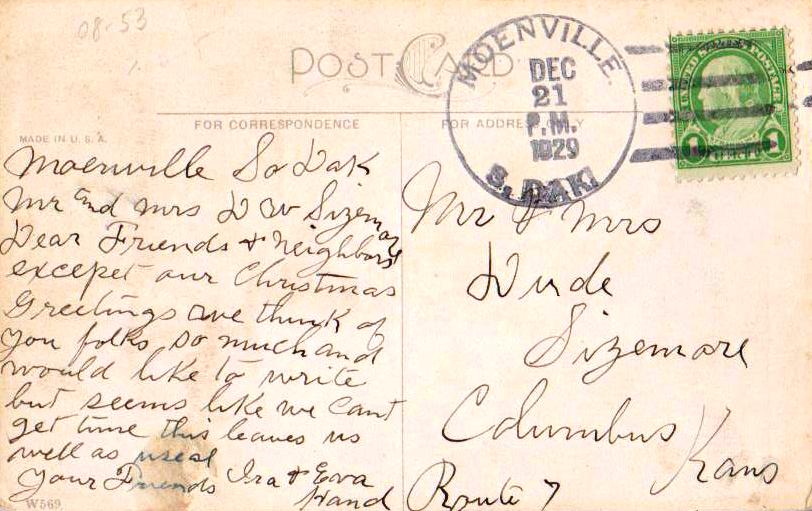 08-53
POST CARD
MOENVILLE.
DEC
21
P.M.
1929
S. DAK.
UNITED STATES POSTAGE
1 CENT 1
MADE IN U. S. A.
FOR CORRESPONDENCE
FOR ADDRESS ONLY
Moenville So Dak
Mr and Mrs D W Sizemore
Dear Friends & Neighbors
excepet our Christmas
Greetings we think of
you folks so much and
would like to write
but seems like we cant
get time this leaves us
well as useal
Your Friends Ira & Eva
Hand
W569
Mr & Mrs
Sizemore
Columbus
Kans
Route 7